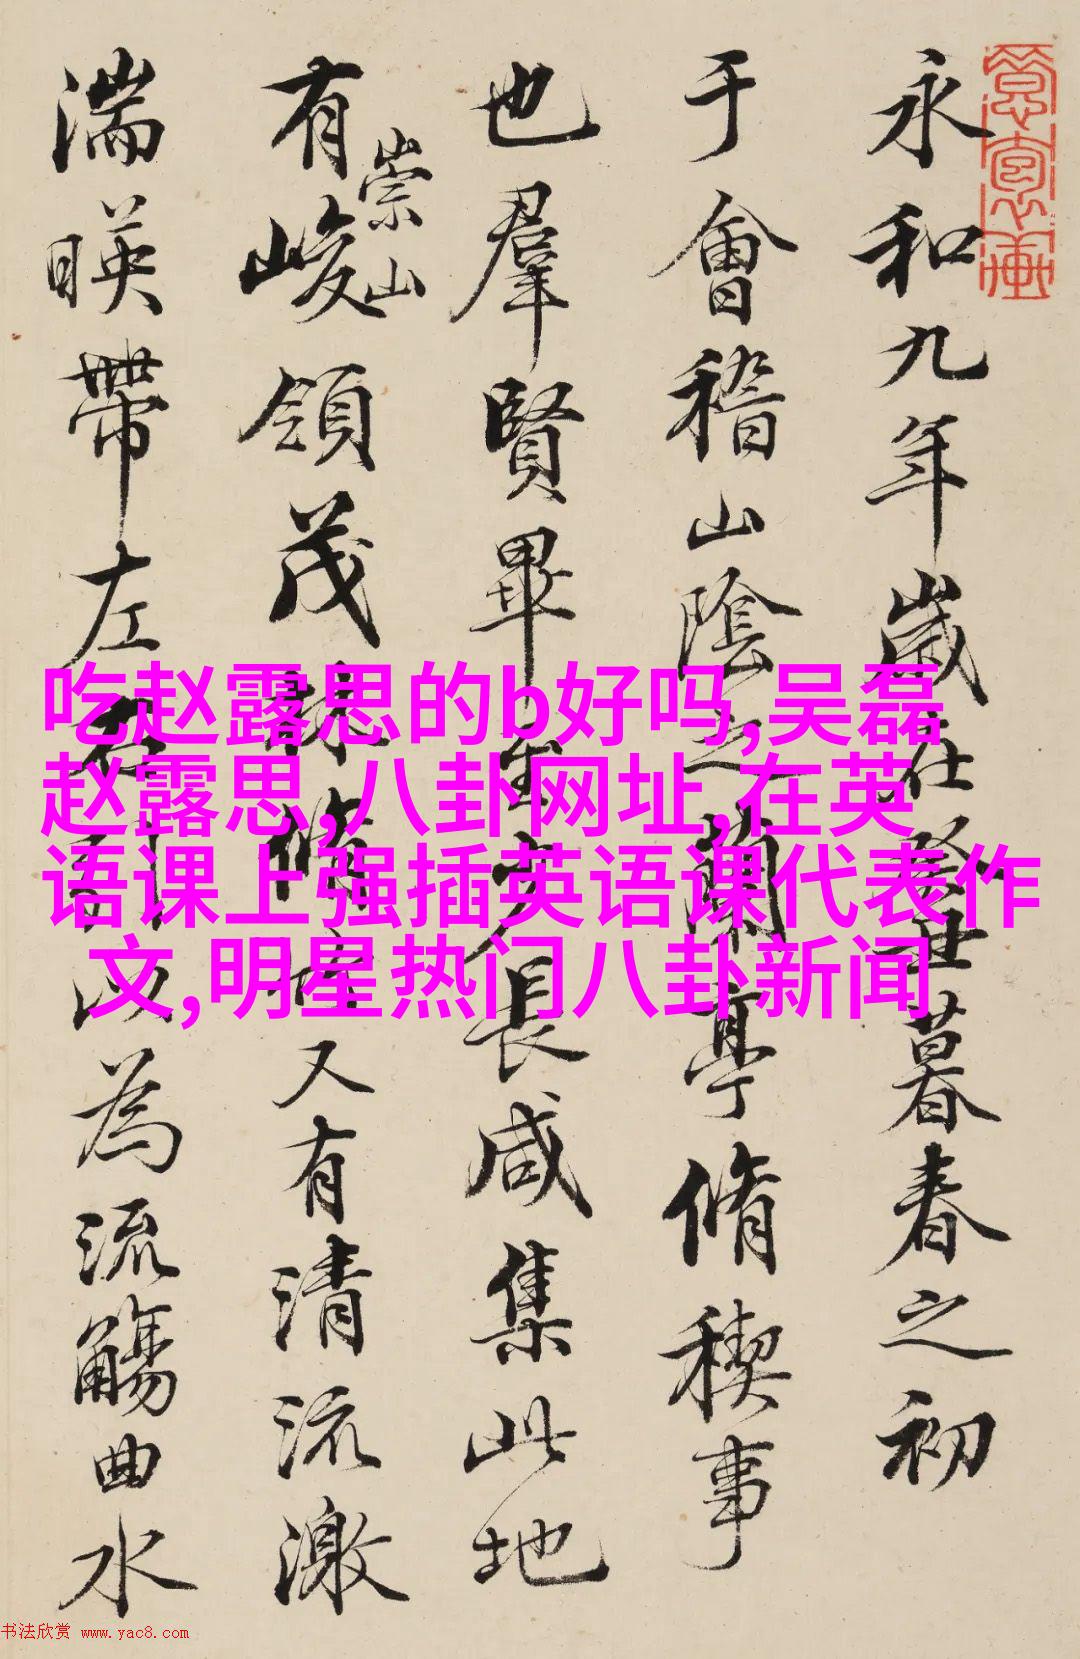 永和九年歲在癸丑暮春之初
于會稽山陰之蘭亭脩稧事
也羣賢畢至少長咸集此地
有崇山峻領茂林脩竹又有清流激
湍暎帶左右引以為流觴曲水
吃赵露思的b好吗,吴磊
赵露思,八卦网址,在英
语课上强插英语课代表作
文,明星热门八卦新闻
书法欣赏 www.yac8.com